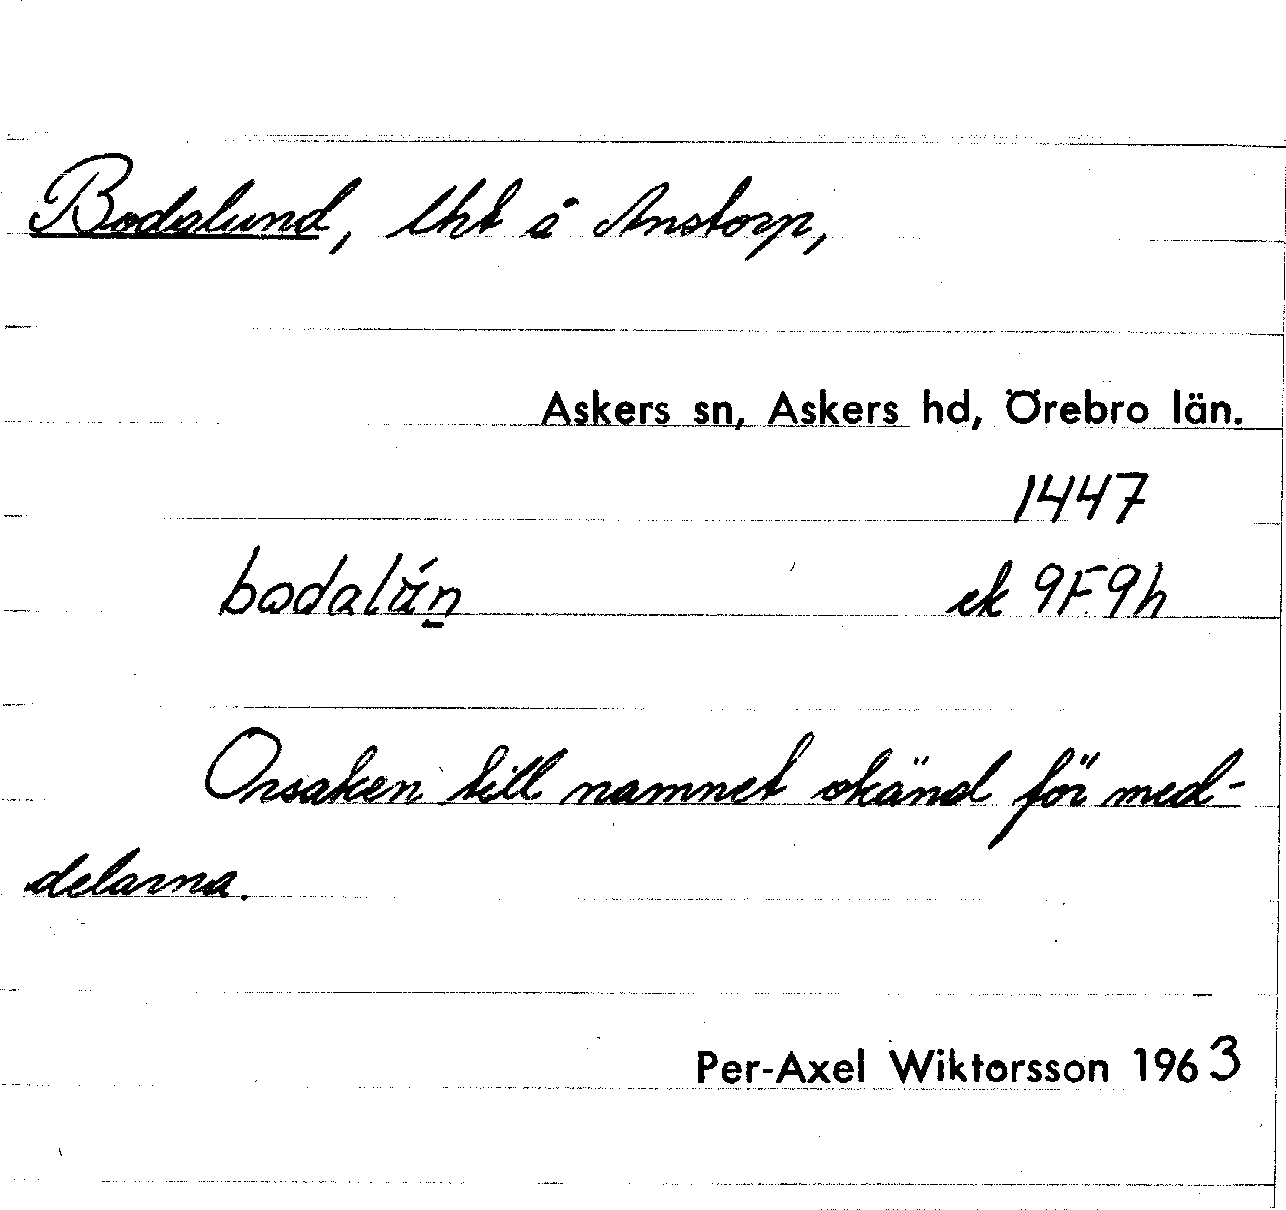 Bodalund, lht å Anstorp,
Askers sn, Askers hd, Örebro län.
1447
bodalún
ek 9F9h
Orsaken till namnet okänd för med-
delarna.
Per-Axel Wiktorsson 1963